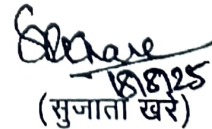 18/8/25
(सुजाता खरे)